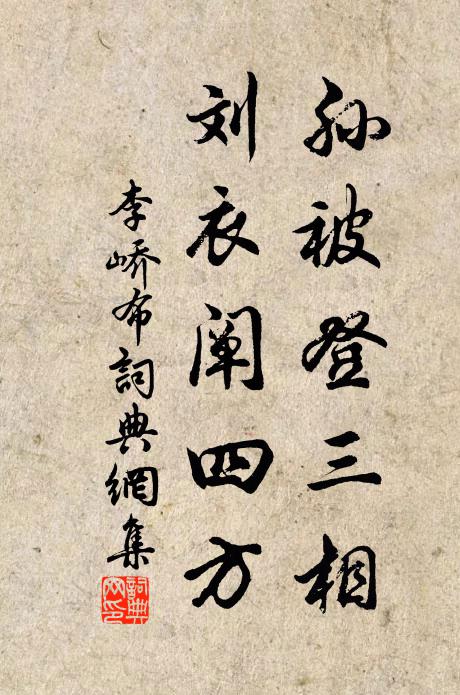 孙被登三相
刘衣阐四方
李峤布詞典網集
詞典網印